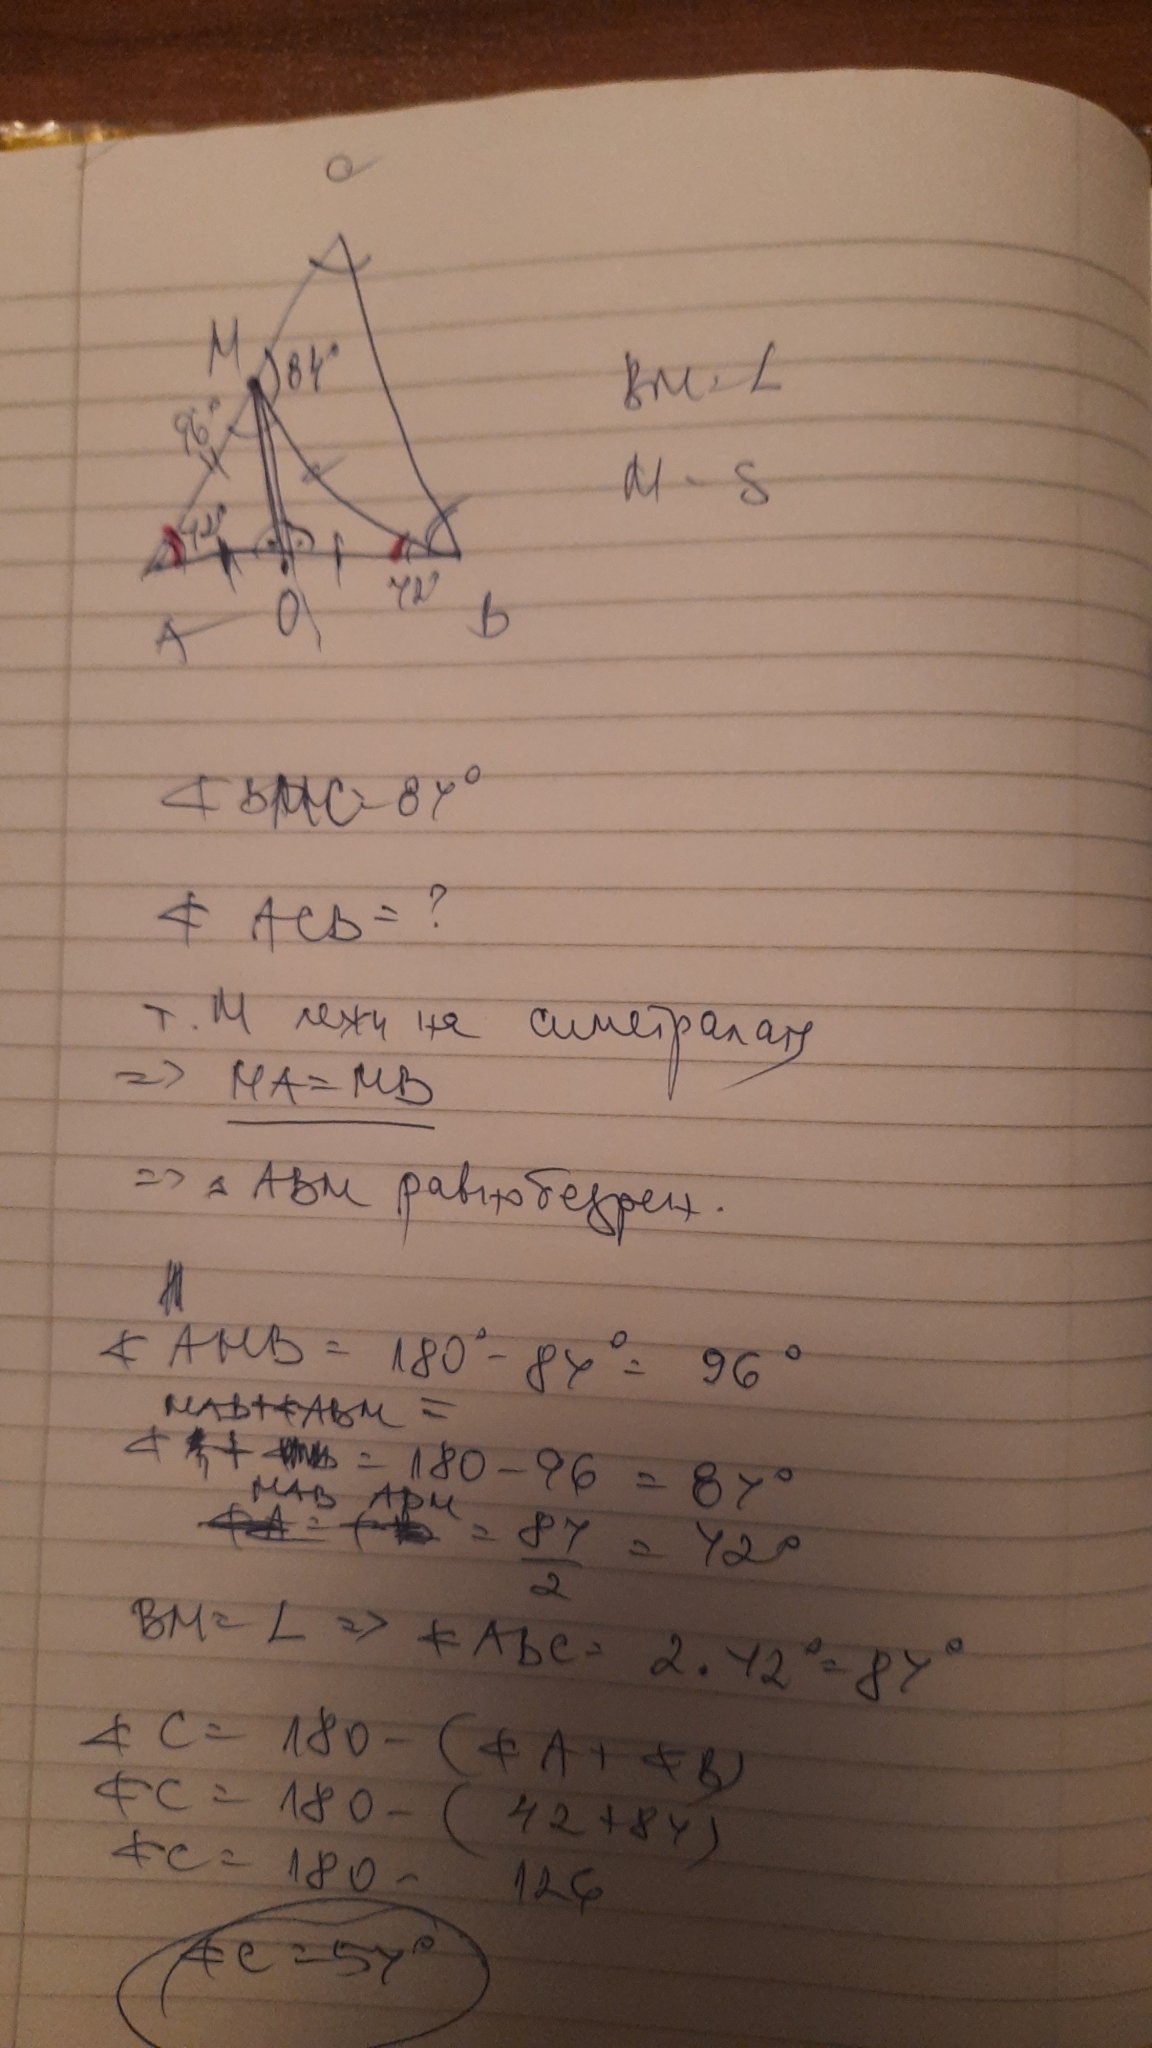 C
M 84°
BM = L
96°
M - S
42°
42°
A O B
∢ BMC = 84°
∢ ACB = ?
т. M лежи на симетралата
=> MA = MB
=> △ ABM равнобедрен.
∢ AMB = 180° - 84° = 96°
MAB + ∢ABM =
∢ = 180 - 96 = 84°
MAB ABM
= 84/2 = 42°
BM = L => ∢ ABC = 2.42° = 84°
∢ C = 180 - (∢ A + ∢ B)
∢ C = 180 - (42 + 84)
∢ C = 180 - 126
∢ C = 54°